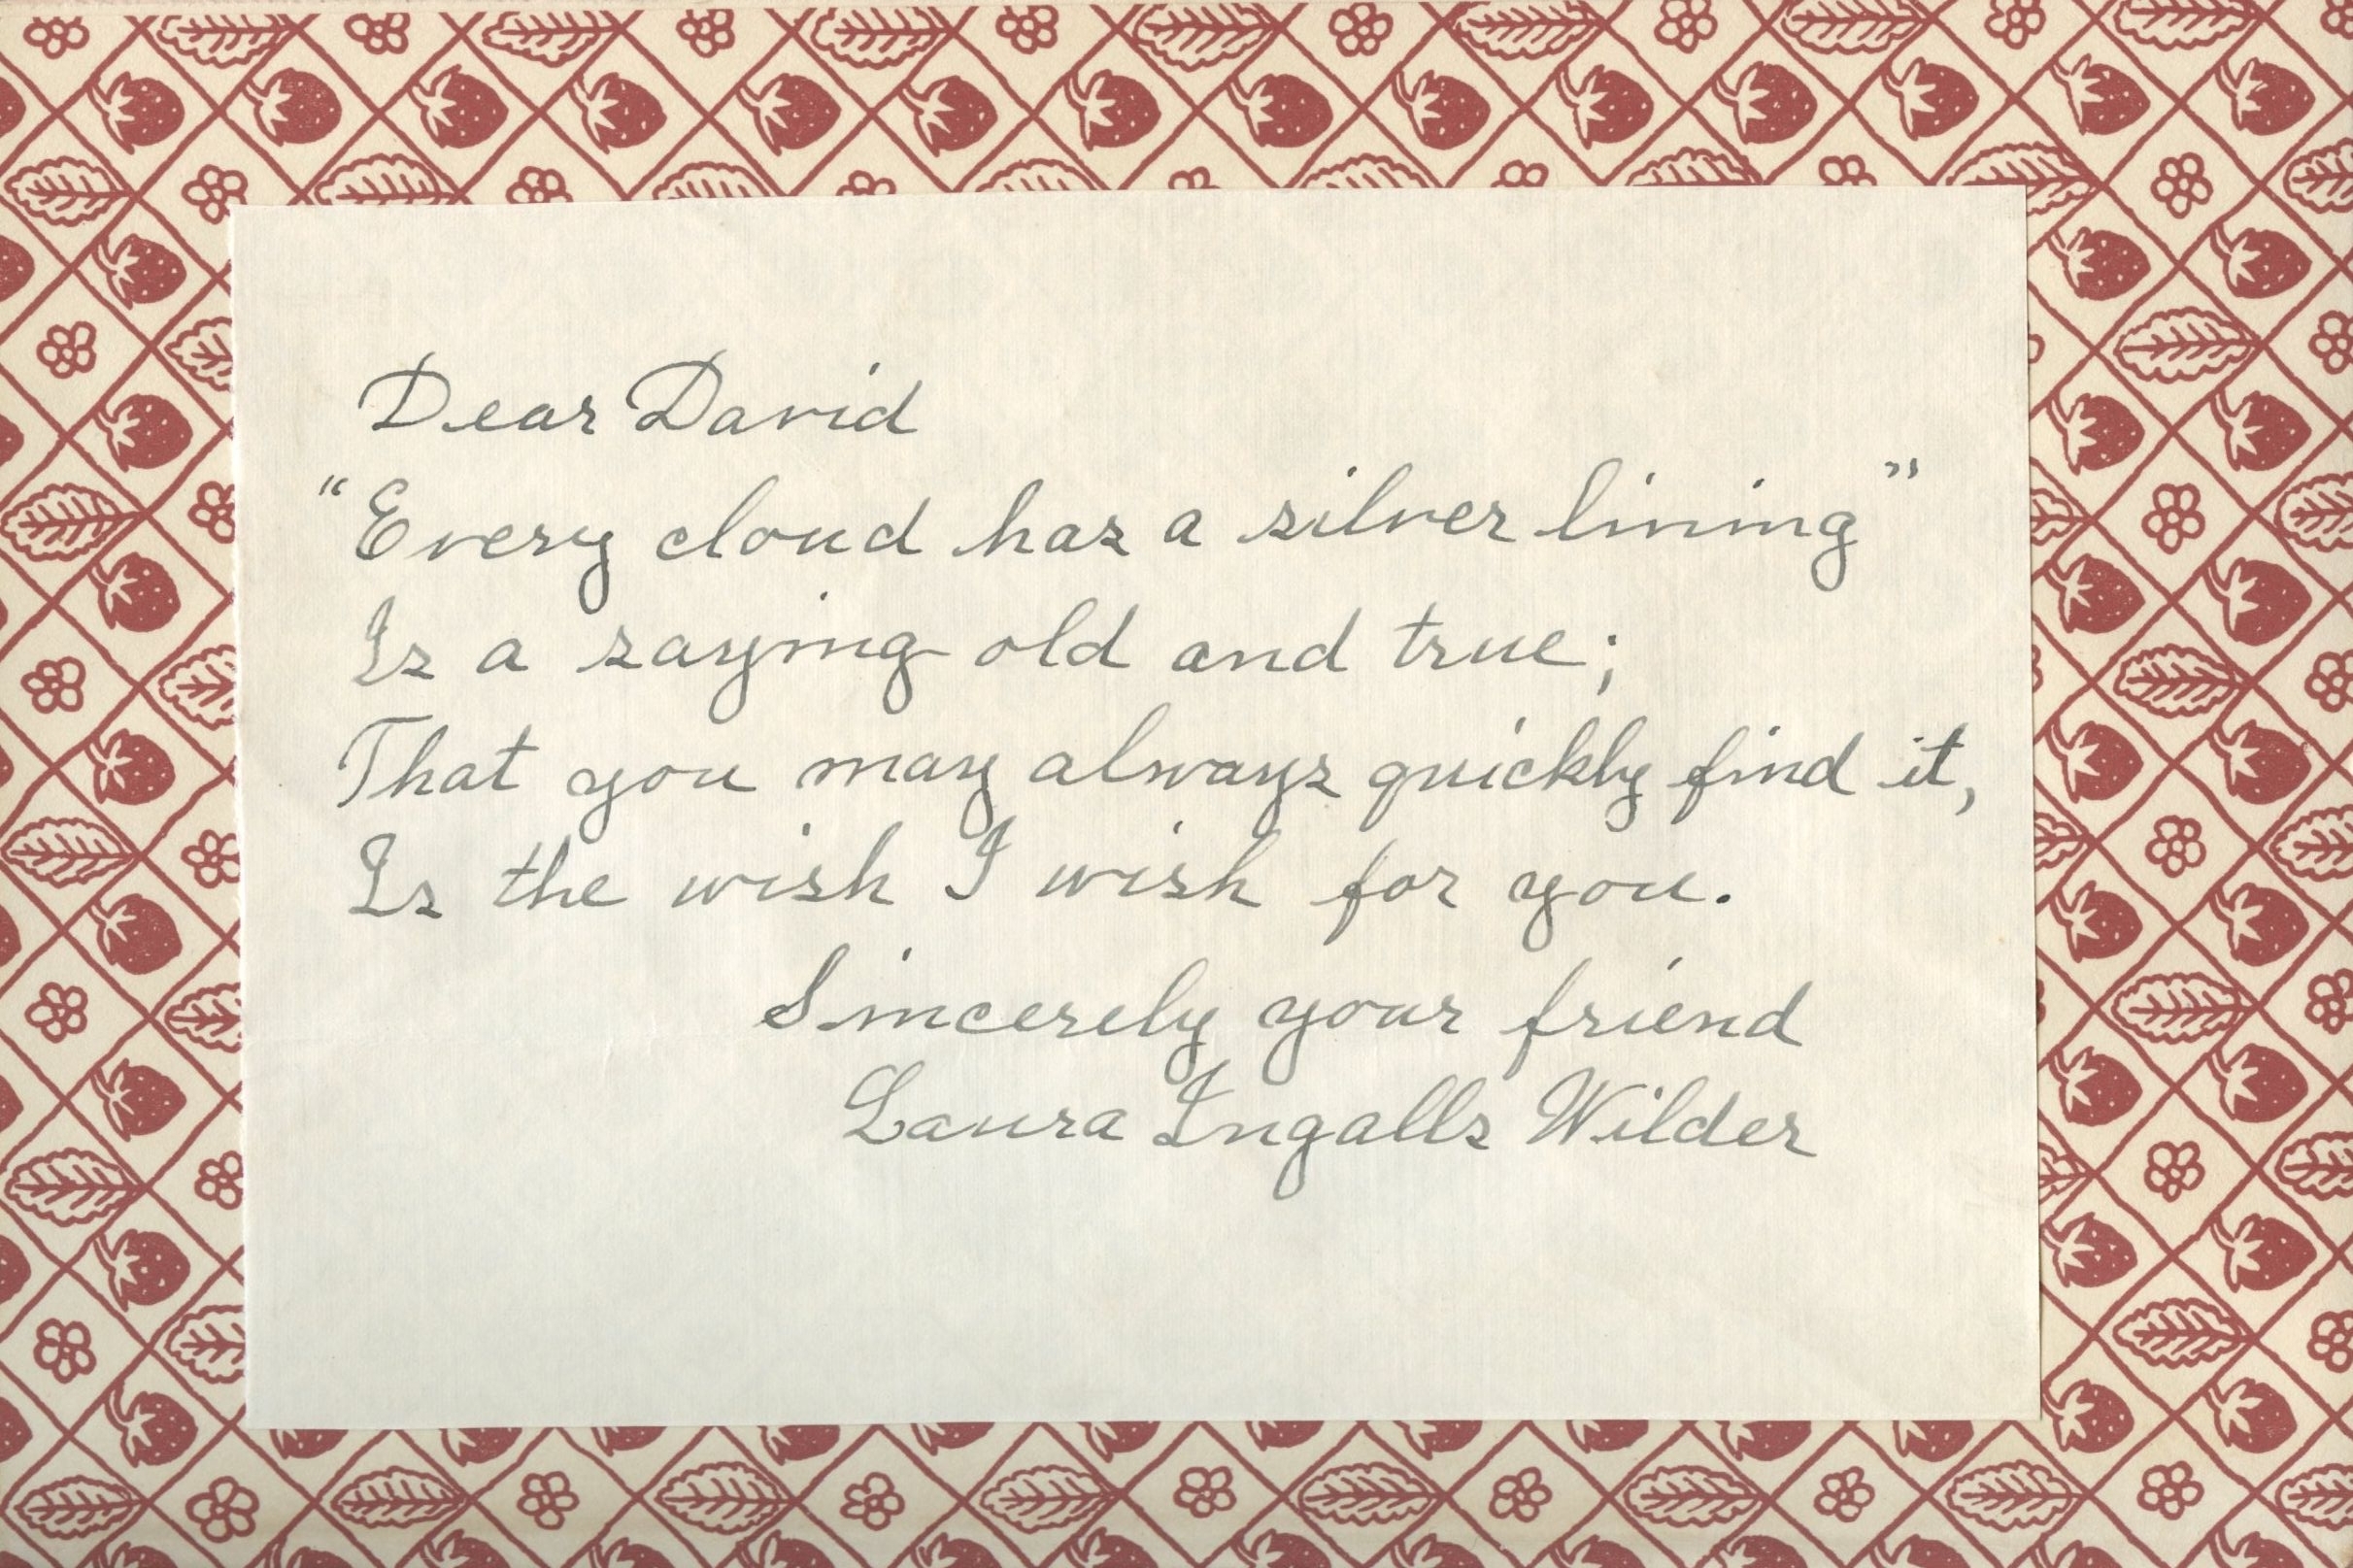 Dear David
"Every cloud has a silver lining"
Is a saying old and true;
That you may always quickly find it,
Is the wish I wish for you.
Sincerely your friend
Laura Ingalls Wilder